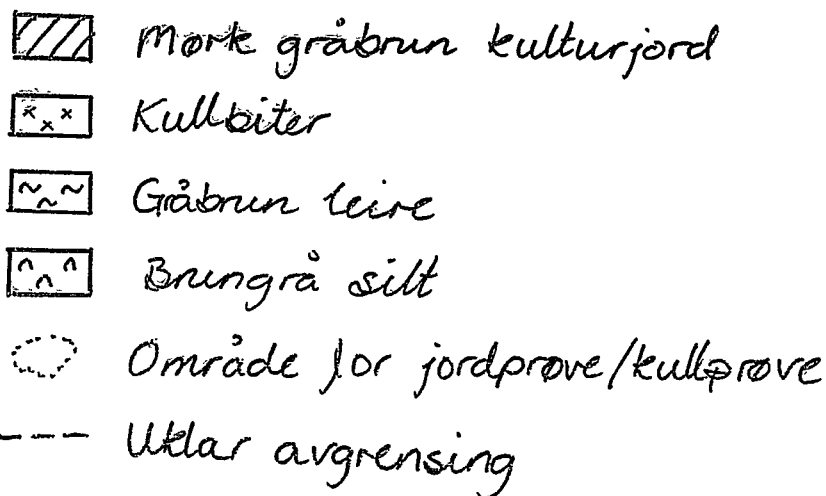 Mørk gråbrun kulturjord
Kullbiter
Gråbrun leire
Brungrå silt
Område for jordprøve/kullprøve
Uklar avgrensing